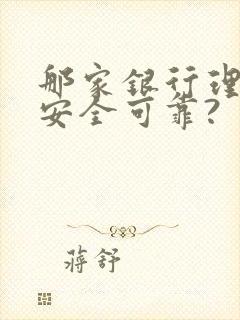 那家银行理
安全可靠?
蒋舒